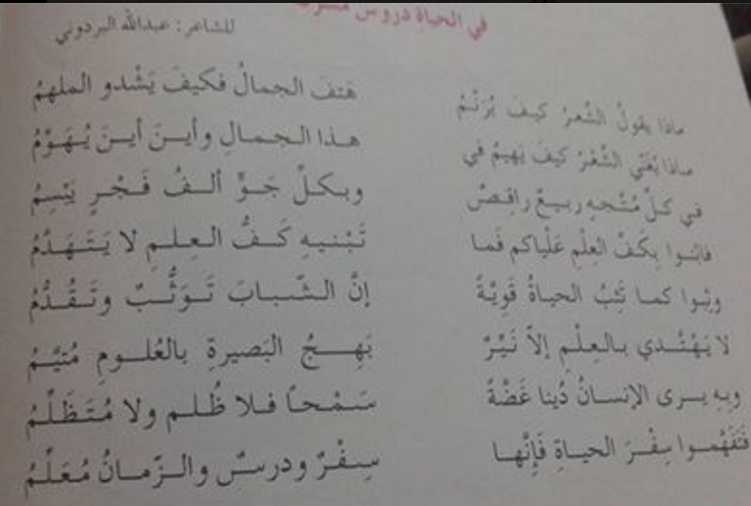 في الحياة دروس
للشاعر: عبدالله البردوني
ماذا يقولُ الشِّعرُ كيفَ يُرَنِّمُ هتفَ الجمالُ فكيفَ يَشْدو الملهمُ
ماذا يُغَنّي الشِّعْرُ كيفَ يَهيمُ في هذا الجمالِ وأينَ أينَ يُهَوِّمُ
في كلِّ مُتَّجهٍ ربيعٌ راقِصٌ وبكلِّ جَوٍّ ألفُ فَجْرٍ يَبْسِمُ
فابنوا بِكَفِّ العِلْمِ عَلْياكم فَما تَبْنيهِ كَفُّ العِلمِ لا يَتَهَدَّمُ
وثِبُوا كما تَثِبُ الحياةُ قَوِيَّةً إنَّ الشَّبابَ تَوَثُّبٌ وتَقَدُّمُ
لا يَهْتَدي بالعِلْمِ إلاّ نَيِّرٌ بَهِجُ البَصيرةِ بالعُلومِ مُتيَّمُ
وبِهِ يرى الإنسانُ دُينا غَضَّةً سَمْحاً فلا ظُلم ولا مُتَظَلِّمُ
فَتَفَهَّموا سِفْرَ الحياةِ فَإنَّها سِفْرٌ ودرسٌ والزّمانُ مُعَلِّمُ